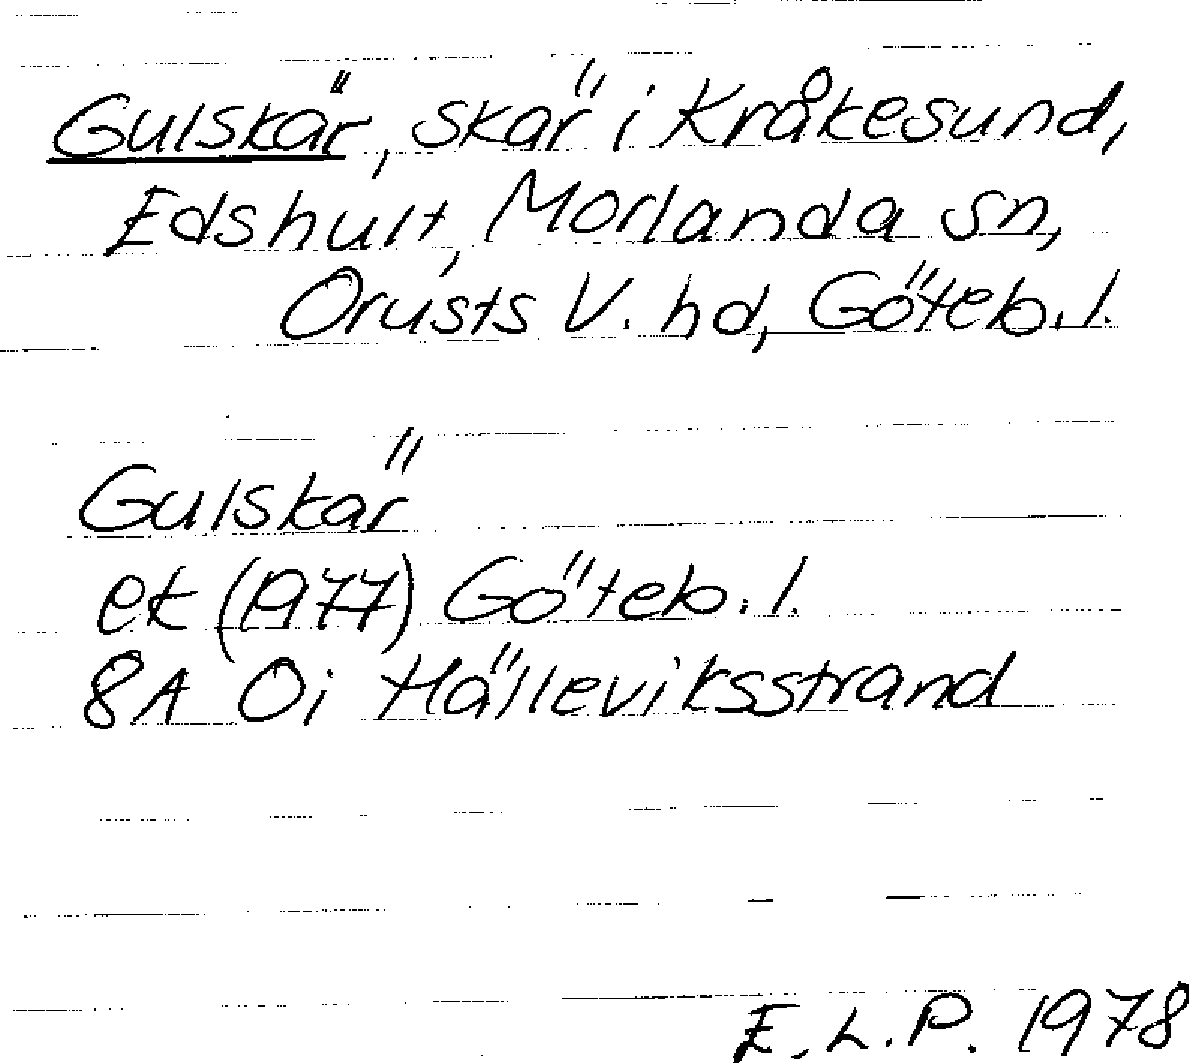 Gulskär, skär i Kråkesund,
Edshult, Morlanda sn,
Orusts V. hd, Göteb. l.
Gulskär
ek (1977) Göteb. l.
8A 0i Hälleviksstrand
E. L. P. 1978